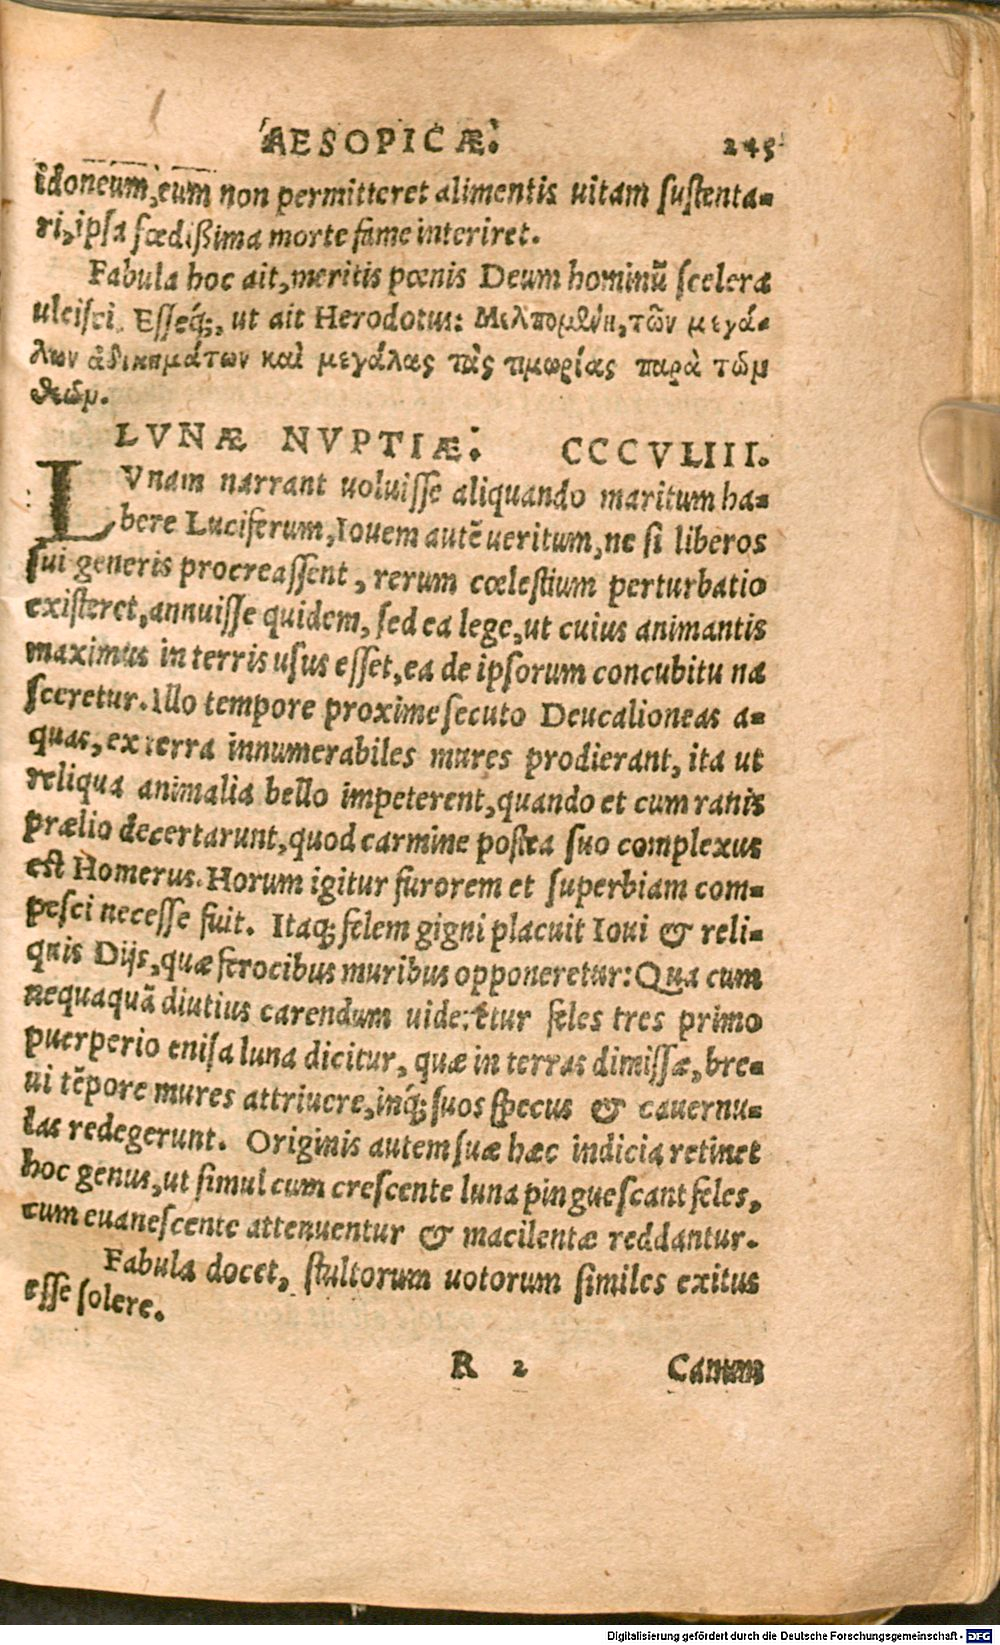 AESOPICÆ. 245
idoneum, eum non permitteret alimentis uitam sustenta-
ri, ipsa fœdißima morte fame interiret.
Fabula hoc ait, meritis pœnis Deum hominũ scelera
ulcisci. Esseq́;, ut ait Herodotus: τῶν μεγά-
λων ἀδικημάτων καὶ μεγάλας τὰς τιμωρίας παρὰ τῶν
θεῶν.
LVNÆ NVPTIÆ. CCCVLIII.
LVnam narrant uoluisse aliquando maritum ha-
bere Luciferum, Iouem autẽ ueritum, ne si liberos
sui generis procreassent, rerum cœlestium perturbatio
existeret, annuisse quidem, sed ea lege, ut cuius animantis
maximus in terris usus esset, ea de ipsorum concubitu na
sceretur. Illo tempore proxime secuto Deucalioneas a-
quas, ex terra innumerabiles mures prodierant, ita ut
reliqua animalia bello impeterent, quando et cum ranis
prælio decertarunt, quod carmine postea suo complexus
est Homerus. Horum igitur furorem et superbiam com-
pesci necesse fuit. Itaq; felem gigni placuit Ioui & reli-
quis Dijs, quæ ferocibus muribus opponeretur: Qua cum
nequaquã diutius carendum uideretur feles tres primo
puerperio enisa luna dicitur, quæ in terras dimissæ, bre-
ui tẽpore mures attriuere, inq́; suos specus & cauernu-
las redegerunt. Originis autem suæ hæc indicia retinet
hoc genus, ut simul cum crescente luna pinguescant feles,
cum euanescente attenuentur & macilentæ reddantur.
Fabula docet, stultorum uotorum similes exitus
esse solere.
R 2
Digitalisierung gefördert durch die Deutsche Forschungsgemeinschaft - DFG